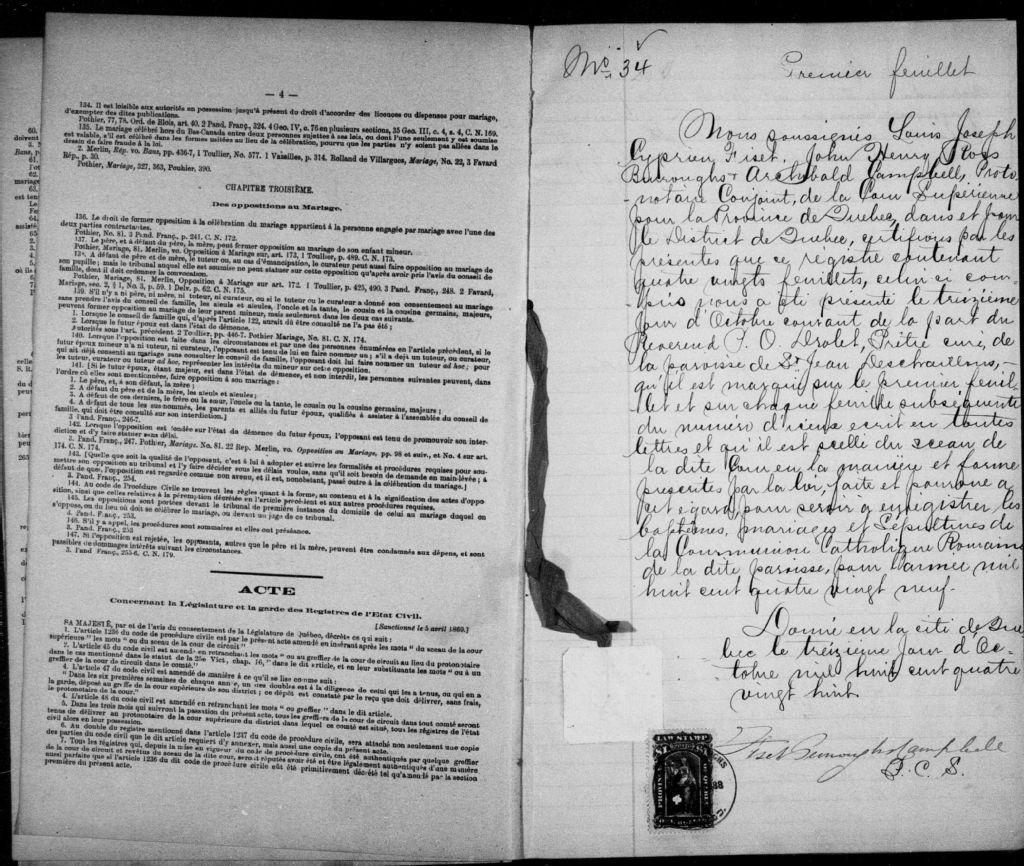 — 4 —
134. Il est loisible aux autorités en possession jusqu'à présent du droit d'accorder les licences ou dispenses pour mariage,
d'exempter des dites publications.
Pothier, 77, 78. Ord. de Blois, art. 40. 2 Pand. Franç., 324. 4 Geo. IV, c. 76 en plusieurs sections, 35 Geo. III, c. 4, s. 4, C. N. 169.
135. Le mariage célébré hors du Bas-Canada entre deux personnes sujettes à ses lois, ou dont l'une seulement y est soumise
est valable, s'il est célébré dans les formes usitées au lieu de la célébration, pourvu que les parties n'y soient pas allées dans le
dessein de faire fraude à la loi.
2. Merlin, Rép. vo. Bans, pp. 436-7, 1 Toullier, No. 577. 1 Vazeilles, p. 314. Rolland de Villargues, Mariage, No. 22, 3 Favard
Rép., p. 30.
Pothier, Mariage, 327, 363, Pouhier, 390.
CHAPITRE TROISIÈME.
Des oppositions au Mariage.
136. Le droit de former opposition à la célébration du mariage appartient à la personne engagée par mariage avec l'une des
deux parties contractantes.
Pothier, No. 81. 3 Pand. Franç., p. 241. C. N. 172.
137. Le père, et à défaut du père, la mère, peut former opposition au mariage de son enfant mineur.
Pothier, Mariage, 81. Merlin, vo. Opposition à Mariage sur, art. 173, 1 Toullier, p. 489. C. N. 173.
138. A défaut de père et de mère, le tuteur, ou, au cas d'émancipation, le curateur peut aussi faire opposition au mariage de
son pupille; mais le tribunal auquel elle est soumise ne peut statuer sur cette opposition qu'après avoir pris l'avis du conseil de
famille, dont il doit ordonner la convocation.
Pothier, Mariage, 81. Merlin, Opposition à Mariage sur art. 172. 1 Toullier, p. 425, 490. 3 Pand. Franç., 248. 2 Favard,
Mariage, sec. 2, § 1, No. 3, p. 59. 1 Delv. p. 62. C. N. 175.
139. S'il n'y a ni père, ni mère, ni tuteur, ni curateur, ou si le tuteur ou le curateur a donné son consentement au mariage
sans prendre l'avis du conseil de famille, les aïeuls et aïeules, l'oncle et la tante, le cousin et la cousine germains, majeurs,
peuvent former opposition au mariage de leur parent mineur, mais seulement dans les deux cas suivants.
1. Lorsque le conseil de famille qui, d'après l'article 122, aurait dû être consulté ne l'a pas été;
2. Lorsque le futur époux est dans l'état de démence.
Autorités sous l'art. précédent. 2 Toullier, pp. 446-7. Pothier Mariage, No. 81. C. N. 174.
140. Lorsque l'opposition est faite dans les circonstances et par une des personnes énumérées en l'article précédent, si le
futur époux mineur n'a ni tuteur, ni curateur, l'opposant est tenu de lui en faire nommer un; s'il a déjà un tuteur, ou curateur,
qui ait déjà consenti au mariage sans consulter le conseil de famille, l'opposant doit lui faire nommer un tuteur ad hoc; pour
les tuteur, curateur ou tuteur ad hoc, représenter les intérêts du mineur sur cette opposition.
141. [Si le futur époux, étant majeur, est dans l'état de démence, et non interdit, les personnes suivantes peuvent, dans
l'ordre où elles sont mentionnées, faire opposition à son mariage:
1. Le père, et, à son défaut, la mère;
2. A défaut du père et de la mère, les aïeuls et aïeules;
3. A défaut de ces derniers, le frère ou la sœur, l'oncle ou la tante, le cousin ou la cousine germains, majeurs;
4. A défaut de tous les sus-nommés, les parents et alliés du futur époux, qualifiés à assister à l'assemblée du conseil de
famille, qui doit être consulté sur son interdiction.]
3 Pand. Franç., 246-7.
142. Lorsque l'opposition est fondée sur l'état de démence du futur époux, l'opposant est tenu de promouvoir son inter-
diction et d'y faire statuer sans délai.
3. Pand. Franç., 247. Pothier, Mariage. No. 81. 22 Rep. Merlin, vo. Opposition au Mariage. pp. 98 et suiv., et No. 4 sur art.
174. C. N. 174.
143. [Quelle que soit la qualité de l'opposant, c'est à lui à adopter et suivre les formalités et procédures requises pour sou-
mettre son opposition au tribunal et l'y faire décider sous les délais voulus, sans qu'il soit besoin de demande en main-levée; à
défaut de quoi, l'opposition est regardée comme non avenue, et il est, nonobstant, passé outre à la célébration du mariage.]
3. Pand. Franç., 254.
144. Au code de Procédure Civile se trouvent les règles quant à la forme, au contenu et à la signification des actes d'oppo-
sition, ainsi que celles relatives à la péremption décrétée en l'article précédent et aux autres procédures requises.
145. Les oppositions sont portées devant le tribunal de première instance du domicile de celui au mariage duquel on
s'oppose, ou du lieu où doit se célébrer le mariage, ou devant un juge de ce tribunal.
4. Pand. Franç., 253.
146. S'il y a appel, les procédures sont sommaires et elles ont préséance.
3. Pand. Franç., 253
147. Si l'opposition est rejetée, les opposants, autres que le père et la mère, peuvent être condamnés aux dépens, et sont
passibles de dommages intérêts suivant les circonstances.
3. Pand Franç., 255-6. C. N. 179.
ACTE
Concernant la Législature et la garde des Registres de l'Etat Civil.
[Sanctionné le 5 avril 1869.]
SA MAJESTÉ, par et de l'avis du consentement de la Législature de Québec, décrète ce qui suit:
1. L'article 1236 du code de procédure civile est par le présent acte amendé en insérant après les mots " du sceau de la cour
supérieure " les mots " ou du sceau de la cour de circuit "
2. L'article 45 du code civil est amendé en retranchant les mots " ou au greffier de la cour de circuit au lieu du protonotaire
dans le cas mentionné dans le statut de la 25e Vict., chap. 16, " dans le dit article, et en leur substituant les mots " ou à un
greffier de la cour de circuit dans le comté."
4. L'article 47 du code civil est amendé de manière à ce qu'il se lise comme suit:
" Dans les six premières semaines de chaque année, un des doubles est à la diligence de celui qui les a tenus, ou qui en a
la garde, déposé au greffe de la cour supérieure de son district; ce dépôt est constaté par le reçu que doit délivrer, sans frais,
le protonotaire de la cour."
4. L'article 48 du code civil est amendé en retranchant les mots " ou greffier " dans le dit article.
5. Dans les trois mois qui suivront la passation du présent acte, tous les greffiers de la cour de circuit dans tout comté seront
tenus de délivrer au protonotaire de la cour supérieure du district dans lequel ce comté est situé, tous les registres de l'état
civil alors en leur possession.
6. Au double du registre mentionné dans l'article 1237 du code de procédure civile, sera attaché non seulement une copie
des parties du code civil que le dit article requiert d'y annexer, mais aussi une copie du présent acte.
7. Tous les registres qui, depuis la mise en vigueur du code de procédure civile, ont été authentiqués par quelque greffier
de la cour de circuit et revêtus du sceau de la dite cour, seront réputés avoir été et être légalement authentiqués d'une manière
aussi parfaite que si l'article 1236 du dit code de procédure civile eût été primitivement décrété tel qu'amendé par la section
première du présent acte.
No. 34
Premier feuillet
Nous soussignés, Louis Joseph
Cyprien Fiset, John Henry Ross
Burroughs & Archibald Campbell, Proto-
-notaire Conjoint, de la Cour Supérieure
pour la Province de Quebec, dans et pour
le District de Quebec, certifions par les
présentes que ce registre contenant
quatre vingts feuillets, celui ci com-
pris nous a été présenté le treizième
jour d'Octobre courant de la part du
Révérend P. O. Drolet, Prêtre curé, de
la paroisse de St. Jean Deschaillons,-
qu'il est marqué sur le premier feuil-
let et sur chaque feuille subséquente
du numéro d'icieux écrit en toutes
lettres et qu'il est scellé du sceau de
la dite Cour en la manière et forme
prescrites par la loi, faite et pourvue à
cet égard, pour servir à enregistrer les
baptêmes, mariages et Sépultures de
la Communion Catholique Romaine
de la dite paroisse, pour l'année mil
huit cent quatre vingt neuf.
Donné en la cité de Qué
bec le treizième jour d'Oc-
tobre mil huit cent quatre
vingt huit.
Fiset Burroughs Campbell
P. C. S.
LAW STAMP